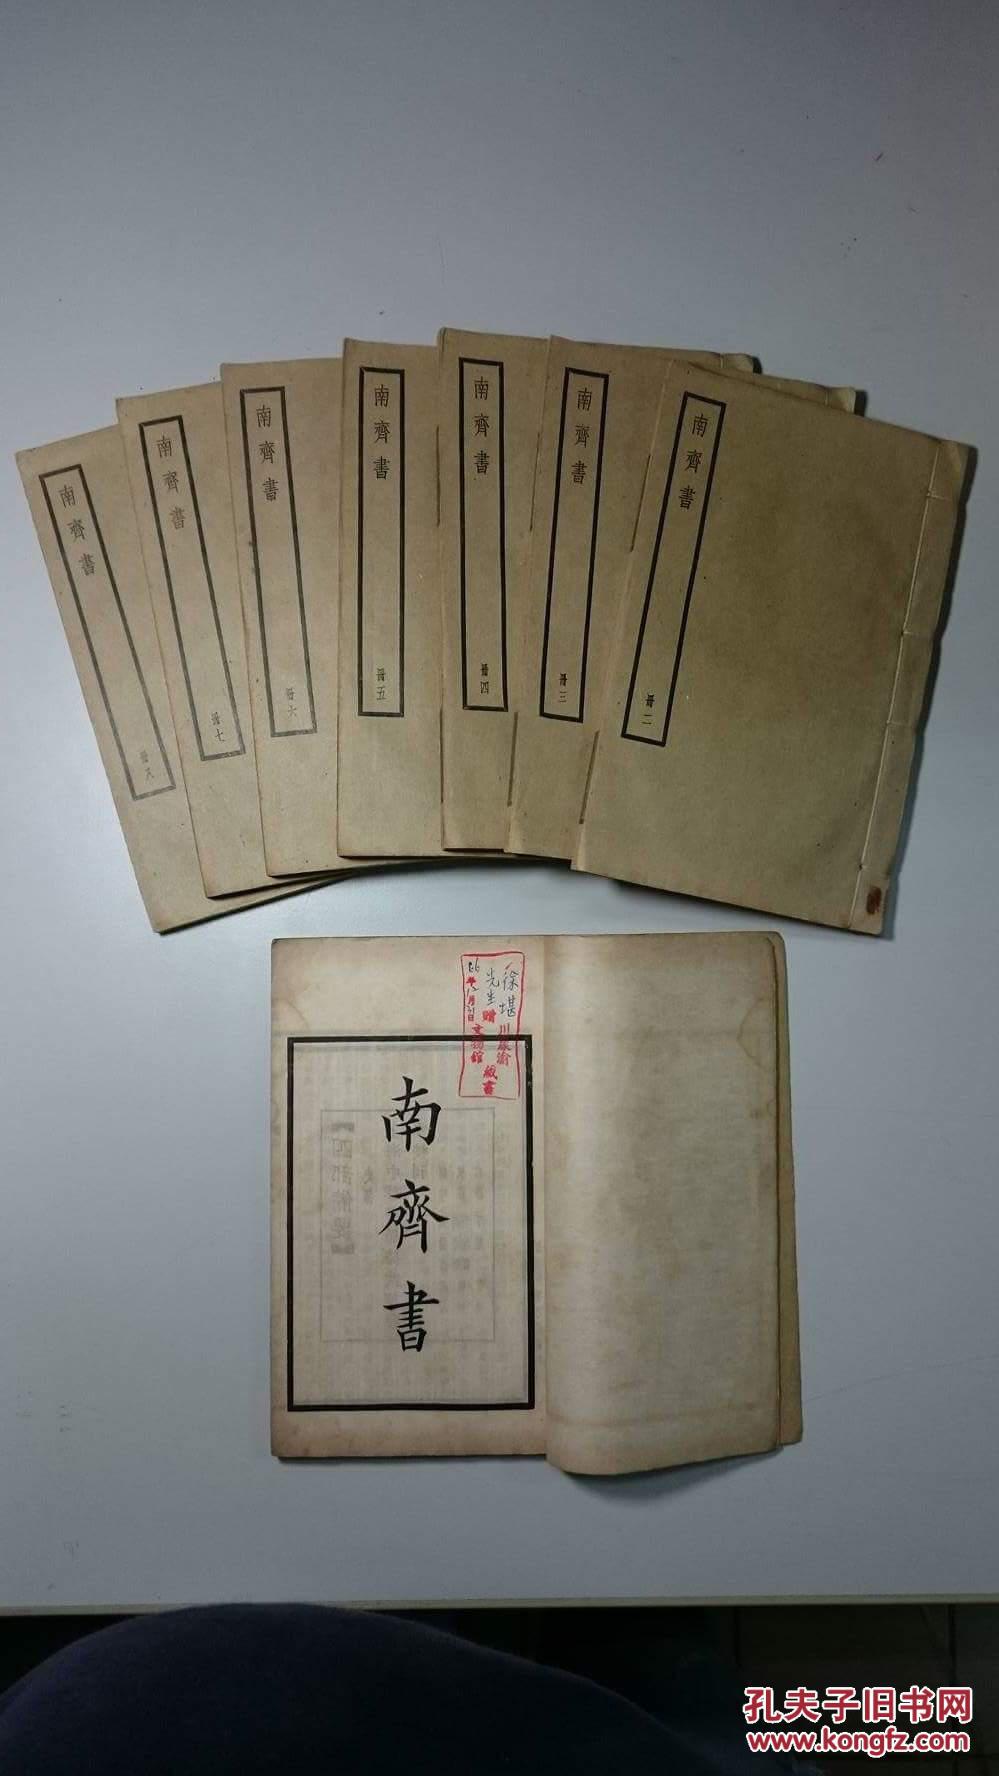 南齊書
冊八
南齊書
冊七
南齊書
冊六
南齊書
冊五
南齊書
冊四
南齊書
冊三
南齊書
冊二
徐堪
先生贈
文物館
南齊書
孔夫子旧书网
www.kongfz.com